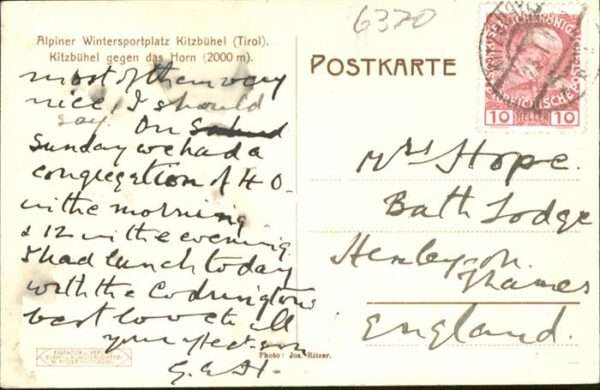 6370
Alpiner Wintersportplatz Kitzbühel (Tirol).
Kitzbühel gegen das Horn (2000 m).
POSTKARTE
10 HELLER 10
most of them very
nice, I should
say. On
Sunday we had a
congregation of 40.
in the morning
& 12 in the evening.
I had lunch today
with the Codringtons
best love to all
your affect. son
G.A.H.
Mrs Hope.
Bath Lodge
Henley on
Thames
England.
Photo: Jos. Ritzer.